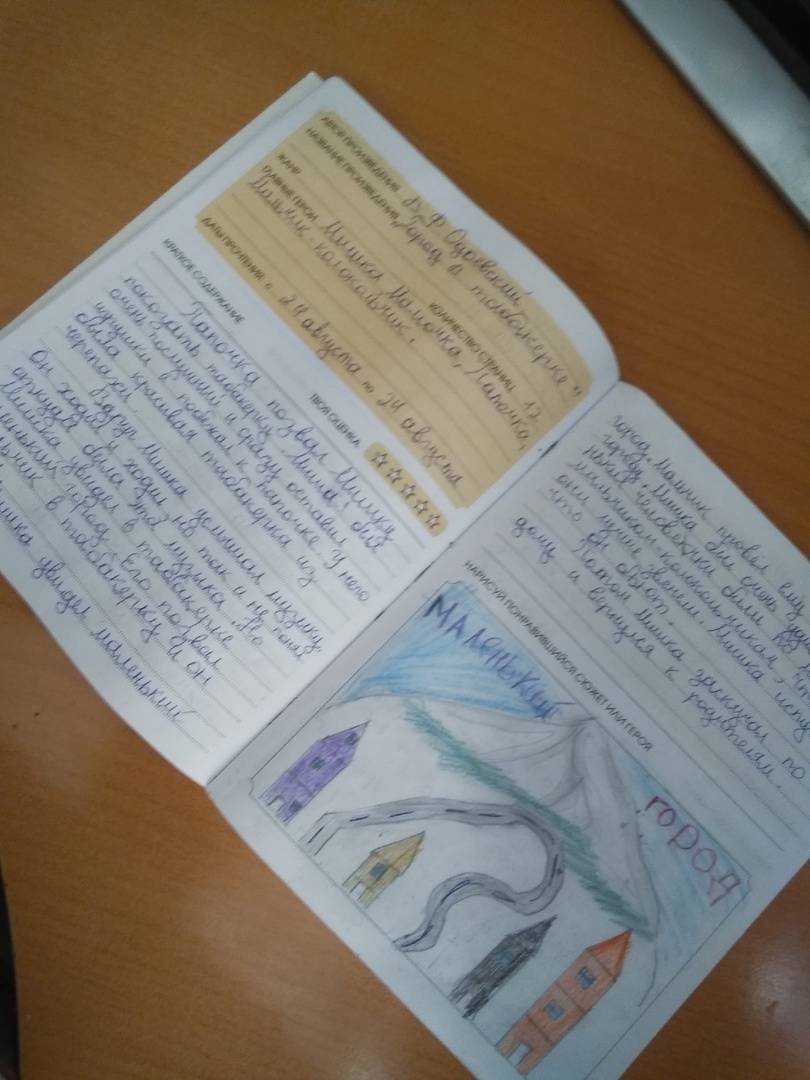 АВТОР ПРОИЗВЕДЕНИЯ В. Ф. Одоевский
НАЗВАНИЕ ПРОИЗВЕДЕНИЯ „Город в табакерке"
ЖАНР КОЛИЧЕСТВО СТРАНИЦ 12
ГЛАВНЫЕ ГЕРОИ Мишка Мамочка, Папочка,
Мальчик-колокольчик.
ДАТЫ ПРОЧТЕНИЯ: с 24 августа по 24 августа
КРАТКОЕ СОДЕРЖАНИЕ ТВОЯ ОЦЕНКА
Папочка позвал Мишку
показать табакерку. Миша был
очень послушный и сразу оставил
игрушки и побежал к папочке. У него
была красивая табакерка из
черепахи.
Вдруг Мишка услышал музыку.
Он ходил и ходил но так и не понял
откуда была эта музыка. Но
Миша увидел в табакерке
маленький город. Его позвал
мальчик в табакерку и он
Мишка увидел маленький
город. Мальчик провел ему
городу. Мишка был очень
человечки были
мальчиком колокольчиком,
они лучше звенели. Мишка
что он обгот.
Потом Мишка заскучал по
дому и вернулся к родителям.
НАРИСУЙ ПОНРАВИВШИЙСЯ СЮЖЕТ ИЛИ ГЕРОЯ
МАЛЕНЬКИЙ
ГОРОД